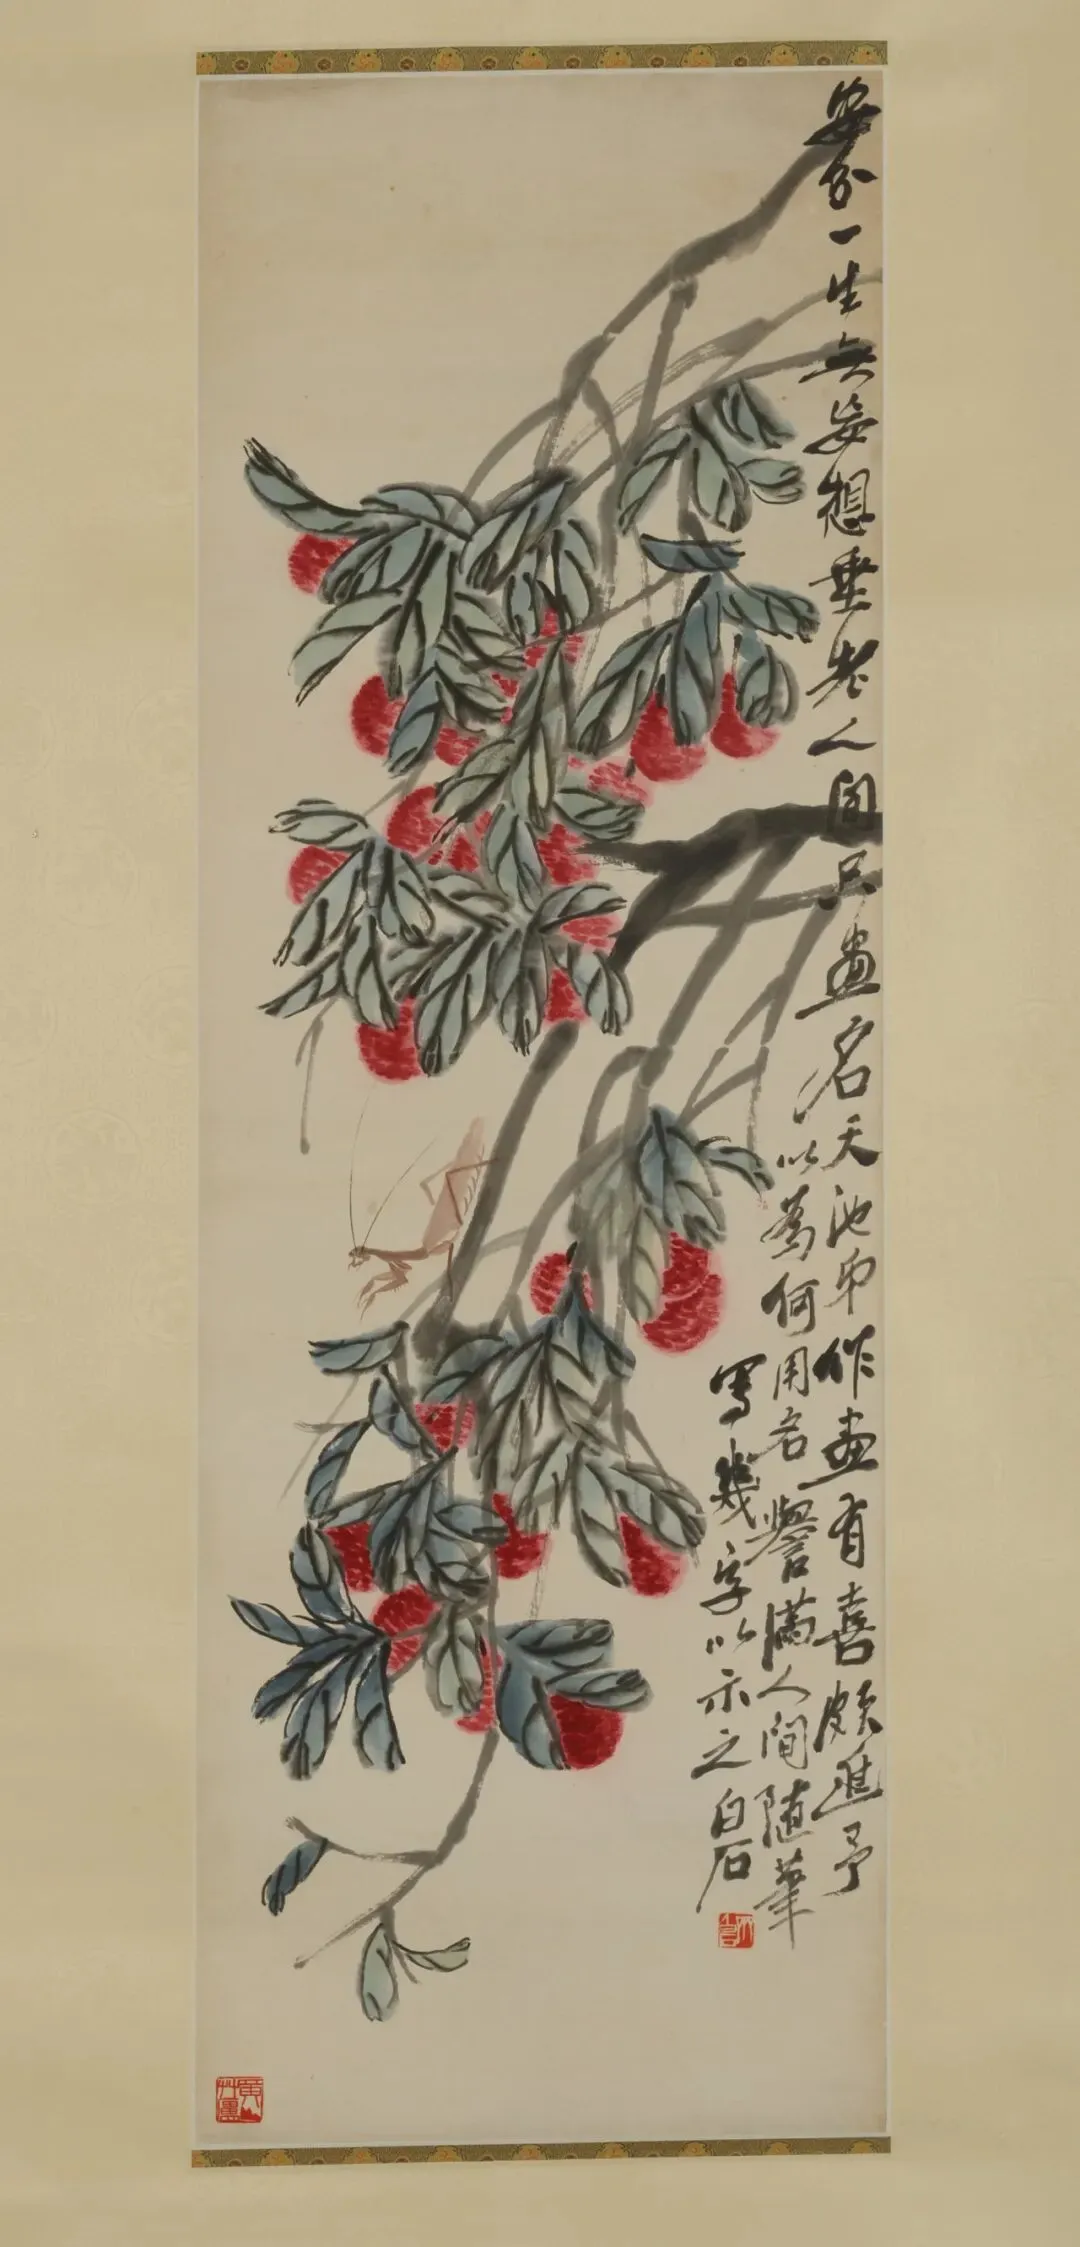 安分一生無妄想垂老人間只畫名天池作畫有喜頗進予
以為何用名譽滿人間随筆
寫幾字以示之白石